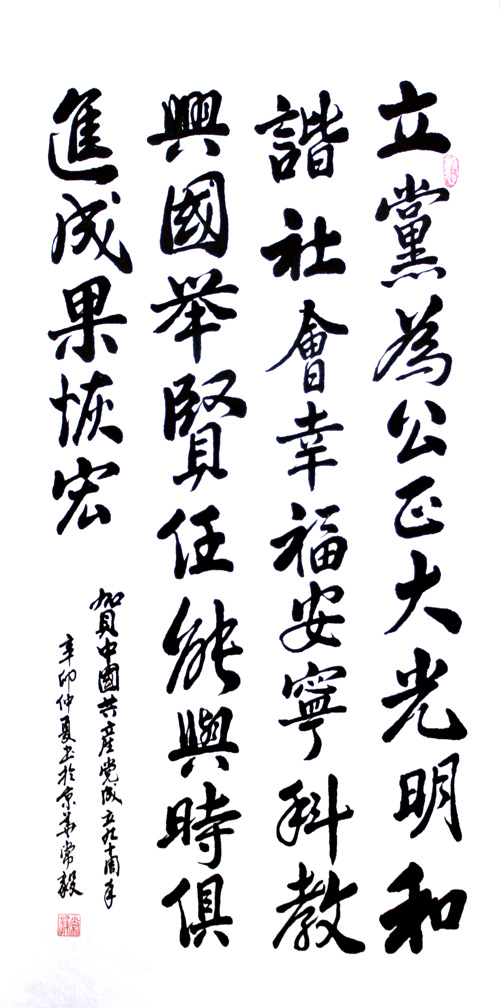 立黨為公正大光明和
諧社會幸福安寧科教
興國举賢任能與時俱
進成果恢宏
賀中國共產党成立九十周年
辛卯仲夏书於京華常毅